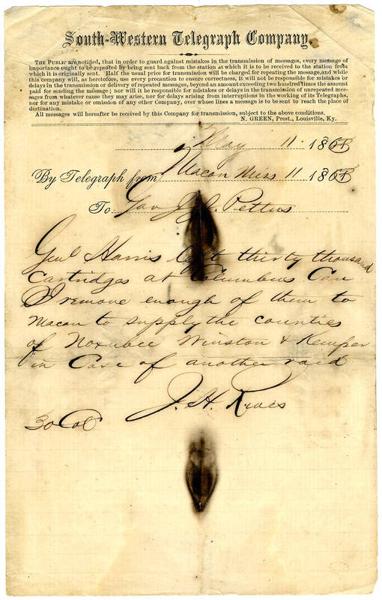 South-Western Telegraph Company.
THE PUBLIC are notified, that in order to guard against mistakes in the transmission of messages, every message of
importance ought to be repeated by being sent back from the station at which it is to be received to the station from
which it is originally sent. Half the usual price for transmission will be charged for repeating the message, and while
this company will, as heretofore, use every precaution to ensure correctness, it will not be responsible for mistakes or
delays in the transmission or delivery of repeated messages, beyond an amount exceeding two hundred times the amount
paid for sending the message; nor will it be responsible for mistakes or delays in the transmission of unrepeated messages
from whatever cause they may arise, nor for delays arising from interruptions in the working of its Telegraphs,
nor for any mistake or omission of any other Company, over whose lines a message is to be sent to reach the place of
destination.
All messages will hereafter be received by this Company for transmission, subject to the above conditions.
N. GREEN, Prest., Louisville, Ky.
May 11 1863
By Telegraph from Macon Miss 11 1863
To Gov J. J. Pettus
Genl Harris left thirty thousand
Cartridges at Columbus Can
I remove enough of them to
Macon to supply the counties
of Noxubee Winston & Kemper
in Case of another raid
J. H.
30